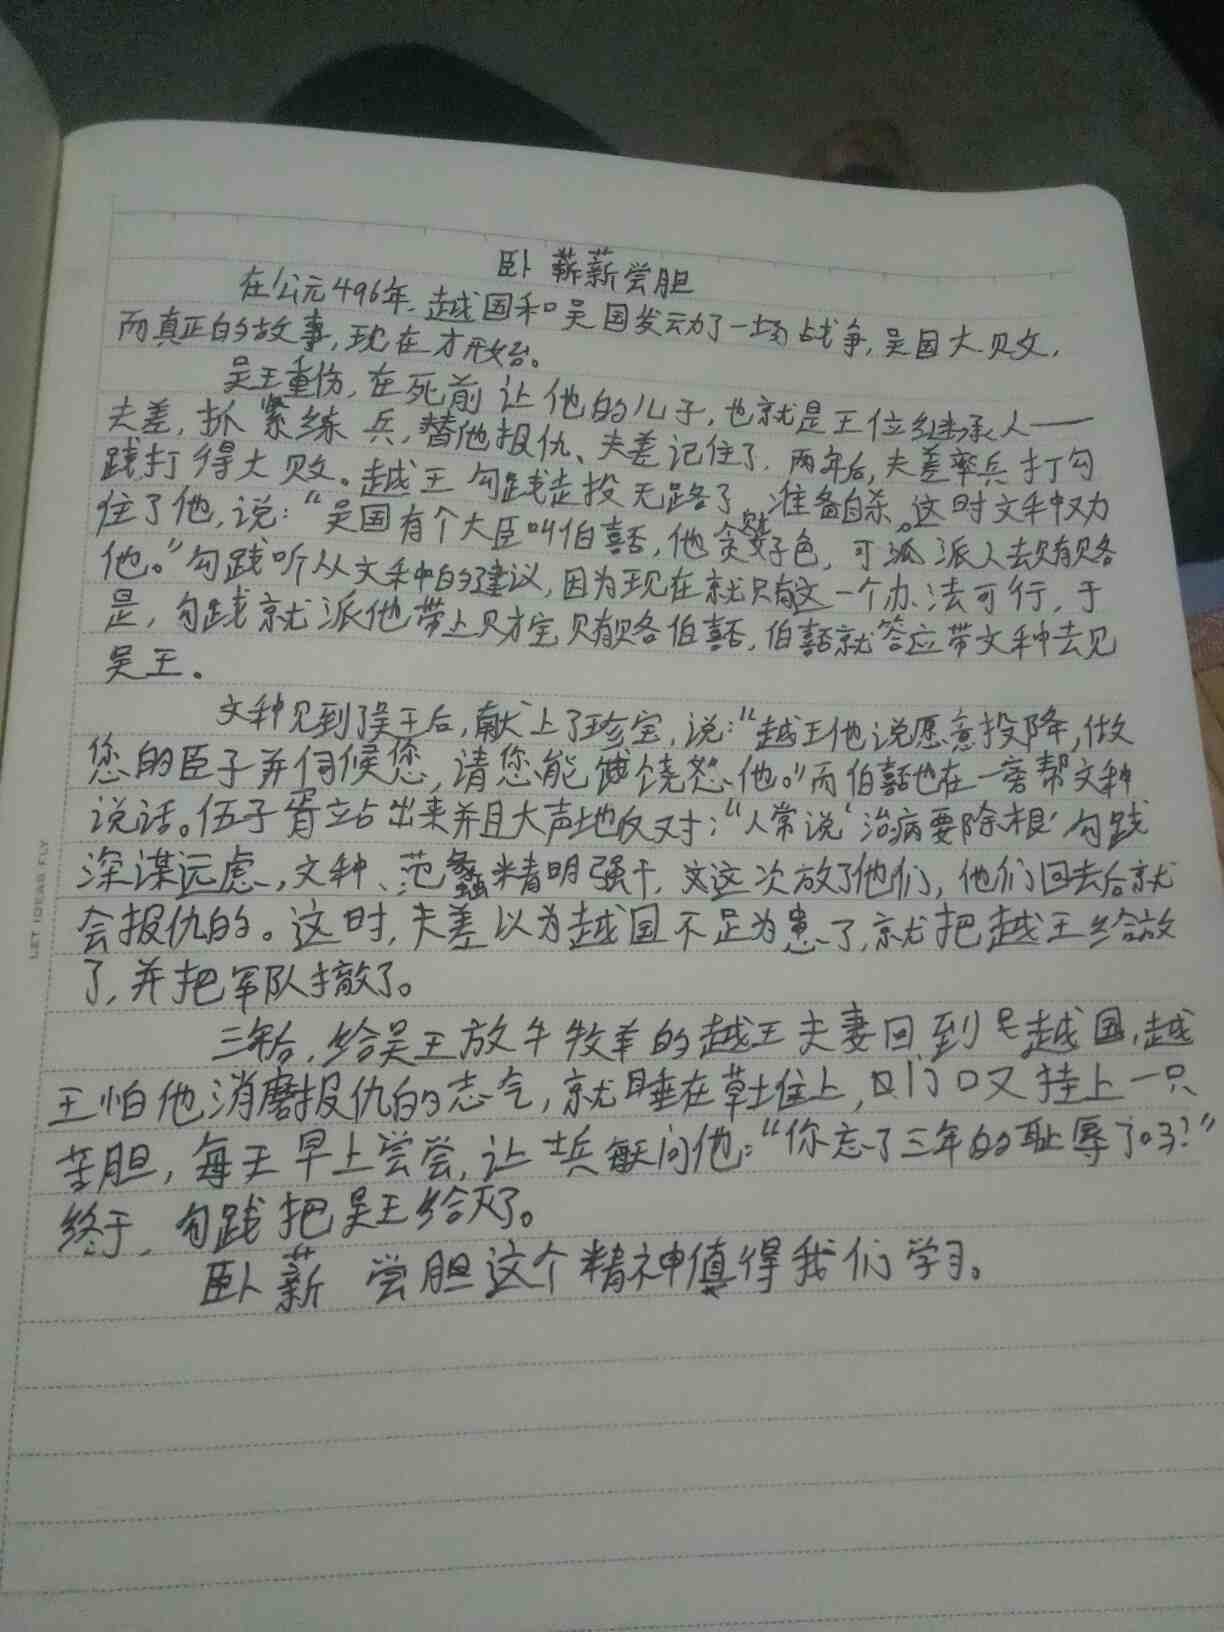 卧薪尝胆
在公元496年，越国和吴国发动了一场战争，吴国大败，
而真正的故事，现在才开始。
吴王重伤，在死前让他的儿子，也就是王位继承人——
夫差，抓紧练兵，替他报仇、夫差记住了，两年后，夫差率兵打勾
践打得大败。越王勾践走投无路了，准备自杀，这时文种劝
住了他，说：“吴国有个大臣叫伯嚭，他贪财好色，可派人去贿赂
他。”勾践听从文种的建议，因为现在就只有这一个办法可行，于
是，勾践就派他带上财宝贿赂伯嚭，伯嚭就答应带文种去见
吴王。
文种见到了吴王后，献上了珍宝，说：“越王他说愿意投降，做
您的臣子并伺候您，请您能饶恕他。”而伯嚭也在一旁帮文种
说话。伍子胥立站出来并且大声地反对：“人常说‘治病要除根’勾践
深谋远虑，文种、范蠡精明强干，这次放了他们，他们回去后就
会报仇的。这时，夫差以为越国不足为患了，就把越王给放
了，并把军队撤了。
三年后，给吴王放牛牧羊的越王夫妻回到越国，越
王怕他消磨报仇的志气，就睡在草堆上，门口又挂上一只
苦胆，每天早上尝尝，让士兵每天问他：“你忘了三年的耻辱了吗？”
终于，勾践把吴王给灭了。
卧薪尝胆这个精神值得我们学习。
LET IDEAS FLY